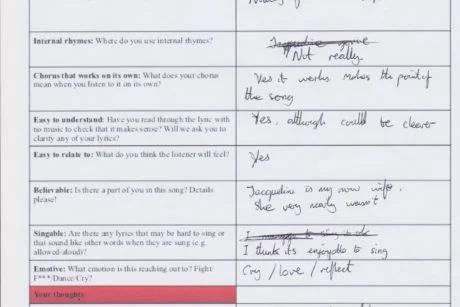 Internal rhymes: Where do you use internal rhymes?
Not really
Chorus that works on its own: What does your chorus
mean when you listen to it on its own?
Yes it works. Makes the point of
the song
Easy to understand: Have you read through the lyric with
no music to check that it makes sense? Will we ask you to
clarify any of your lyrics?
Yes, although could be clearer
Easy to relate to: What do you think the listener will feel?
Yes
Believable: Is there a part of you in this song? Details
please!
Jacqueline is my now wife.
She very nearly wasn't
Singable: Are there any lyrics that may be hard to sing or
that sound like other words when they are sung (e.g.
allowed/aloud)?
I think it's enjoyable to sing
Emotive: What emotion is this reaching out to? Fight/
F***/Dance/Cry?
Cry / love / reflect
Your thoughts